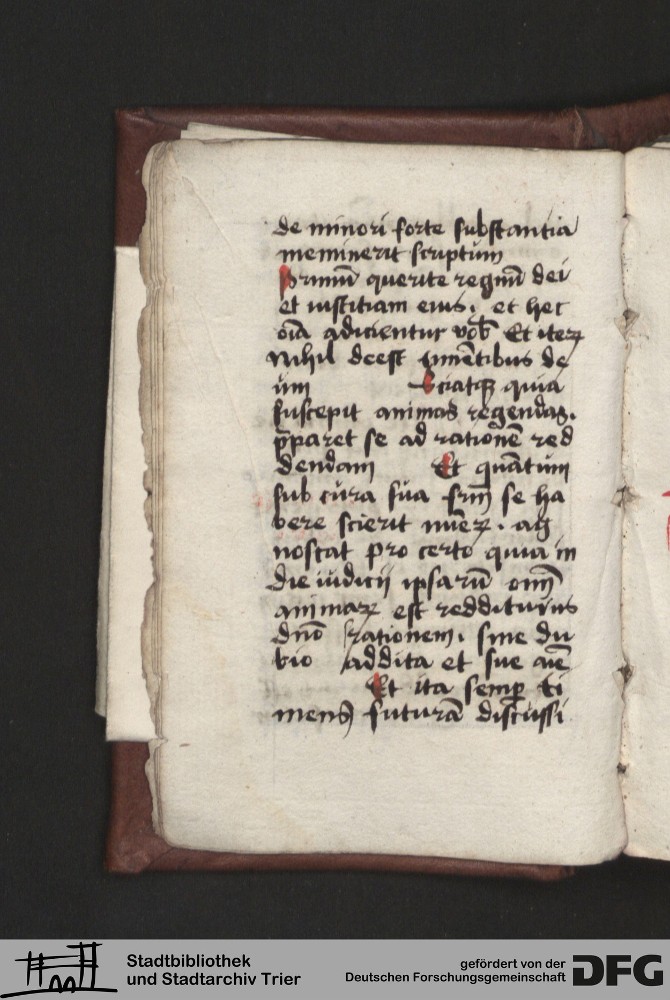 de minori forte substantia
meminerit scriptum
Primū querite regnū dei
et iusticiam eius. et hec
oīa adicientur vob̄ Et iteꝝ
Nihil deest timētibus de
um Sciatqꝫ quia
suscepit animas regendas.
p̄paret se ad rationē red
dendam Et quātum
sub cura sua frm̄ se ha
bere scierit nūeꝝ. ag
noscat pro certo quia in
die iudicij ipsarū om̄
animaꝝ est redditurus
dn̄o rationem. sine du
bio addita et sue aīe
Et ita semꝑ ti
mens futurā discussi
Stadtbibliothek
und Stadtarchiv Trier
gefördert von der
Deutschen Forschungsgemeinschaft
DFG